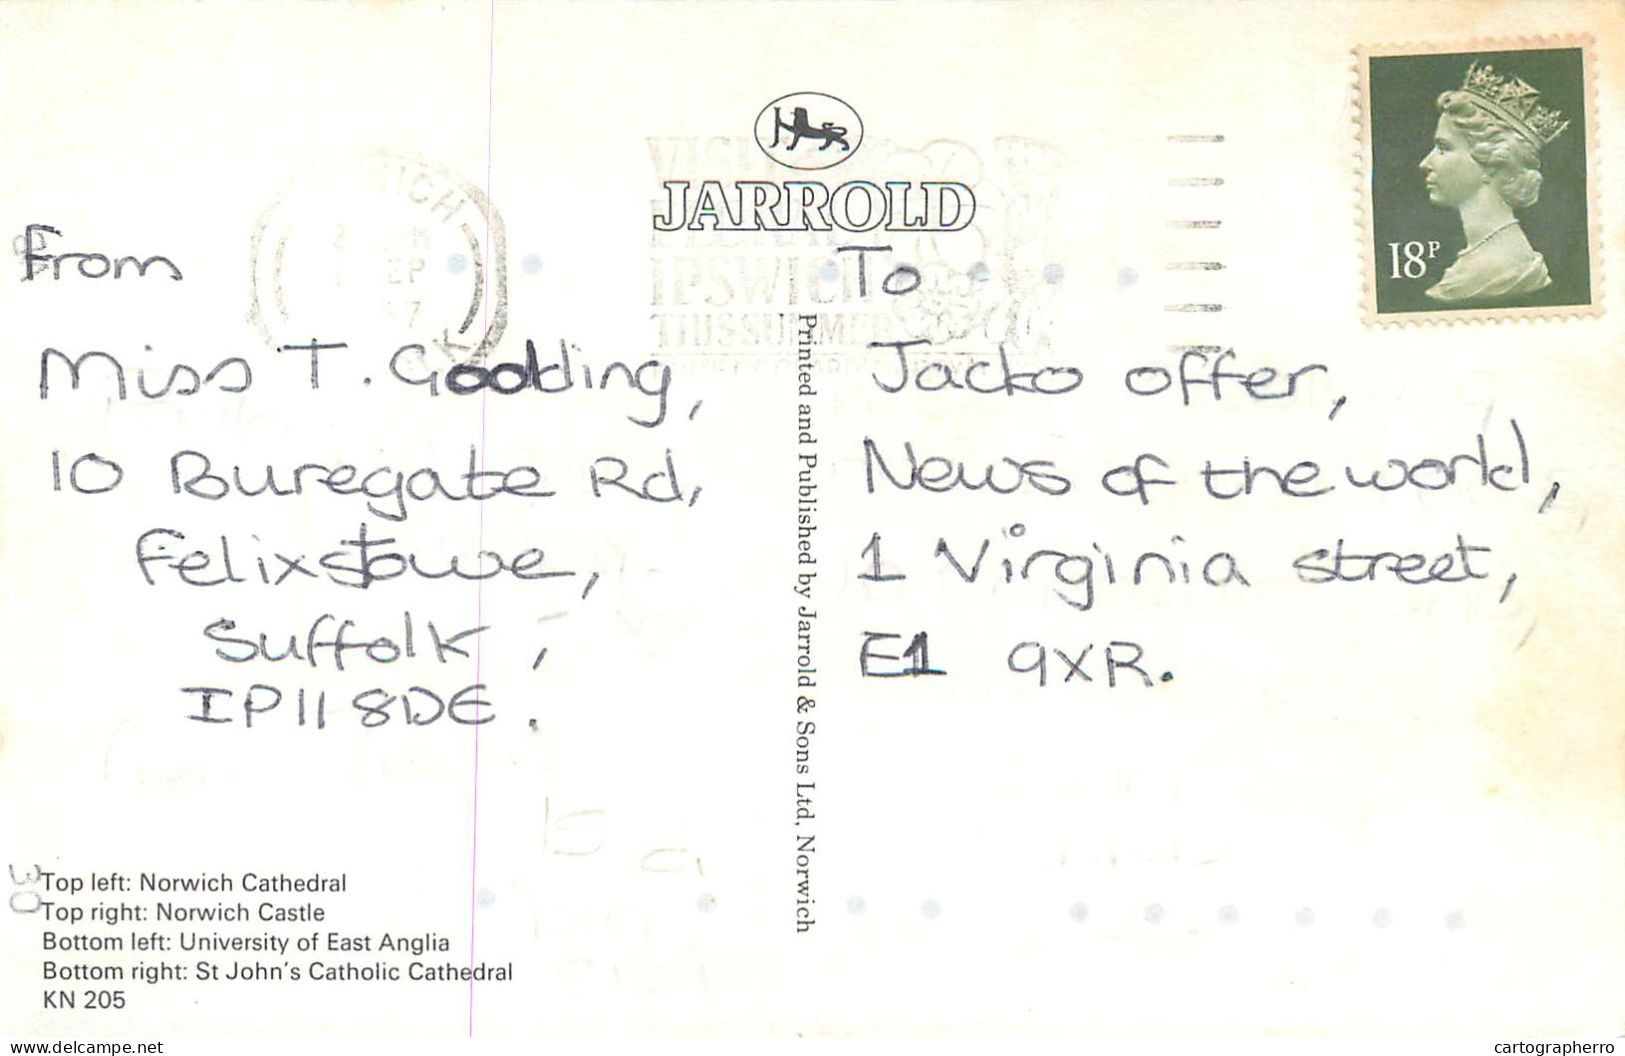 JARROLD
18P
From
Miss T. Goodding,
10 Buregate Rd,
Felixstowe,
Suffolk,
IP11 8DE.
To
Jacko offer,
News of the world,
1 Virginia street,
E1 9XR.
IPSWICH
THIS SUMMER
Printed and Published by Jarrold & Sons Ltd, Norwich
Top left: Norwich Cathedral
Top right: Norwich Castle
Bottom left: University of East Anglia
Bottom right: St John's Catholic Cathedral
KN 205
www.delcampe.net
cartographerro